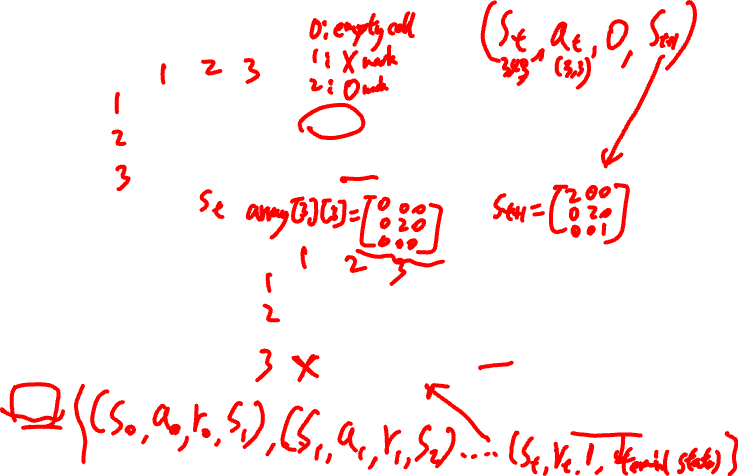 0: empty cell
1: X mark
2: O mark
(St, at, 0, St+1)
3x3, (3,3)
1 2 3
1
2
3
St array[3][3] = [0 0 0
0 2 0
0 0 0]
St+1 = [2 0 0
0 2 0
0 0 1]
1 2 3
1
2
3 X
{(S0, a0, r0, S1), (S1, a1, r1, S2) ..... (St, rt, 1,